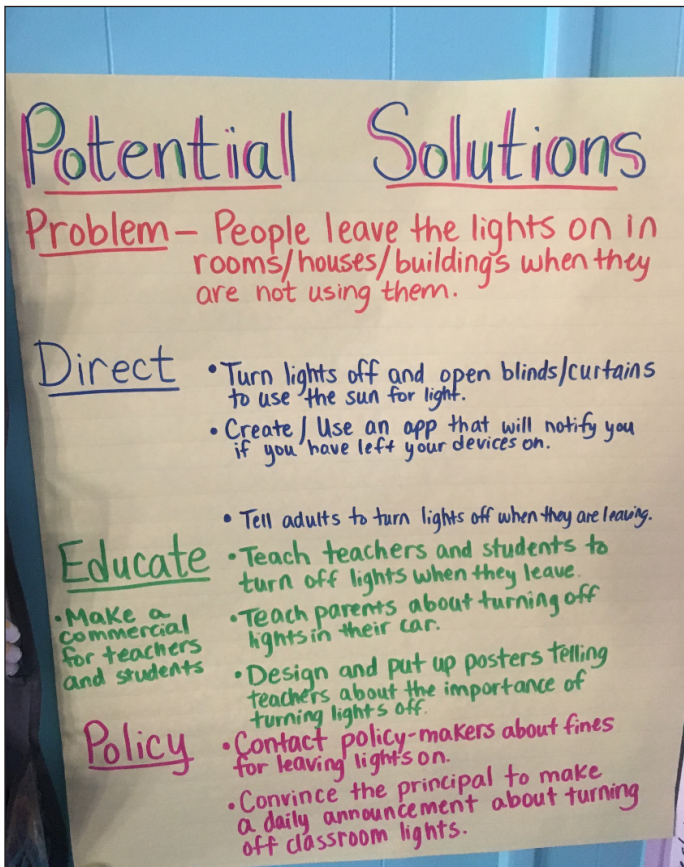 Potential Solutions
Problem – People leave the lights on in
rooms/houses/buildings when they
are not using them.
Direct
• Turn lights off and open blinds/curtains
to use the sun for light.
• Create / Use an app that will notify you
if you have left your devices on.
• Tell adults to turn lights off when they are leaving.
Educate
• Teach teachers and students to
turn off lights when they leave.
• Teach parents about turning off
lights in their car.
• Design and put up posters telling
teachers about the importance of
turning lights off.
• Make a
commercial
for teachers
and students
Policy
• Contact policy-makers about fines
for leaving lights on.
• Convince the principal to make
a daily announcement about turning
off classroom lights.